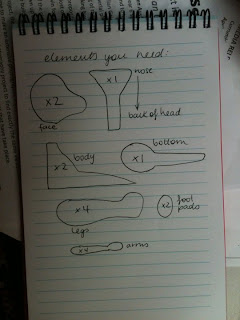 elements you need:
x2
face
x1
nose
back of head
x2
body
bottom
x1
x4
legs
x2
foot
pads
x4
arms